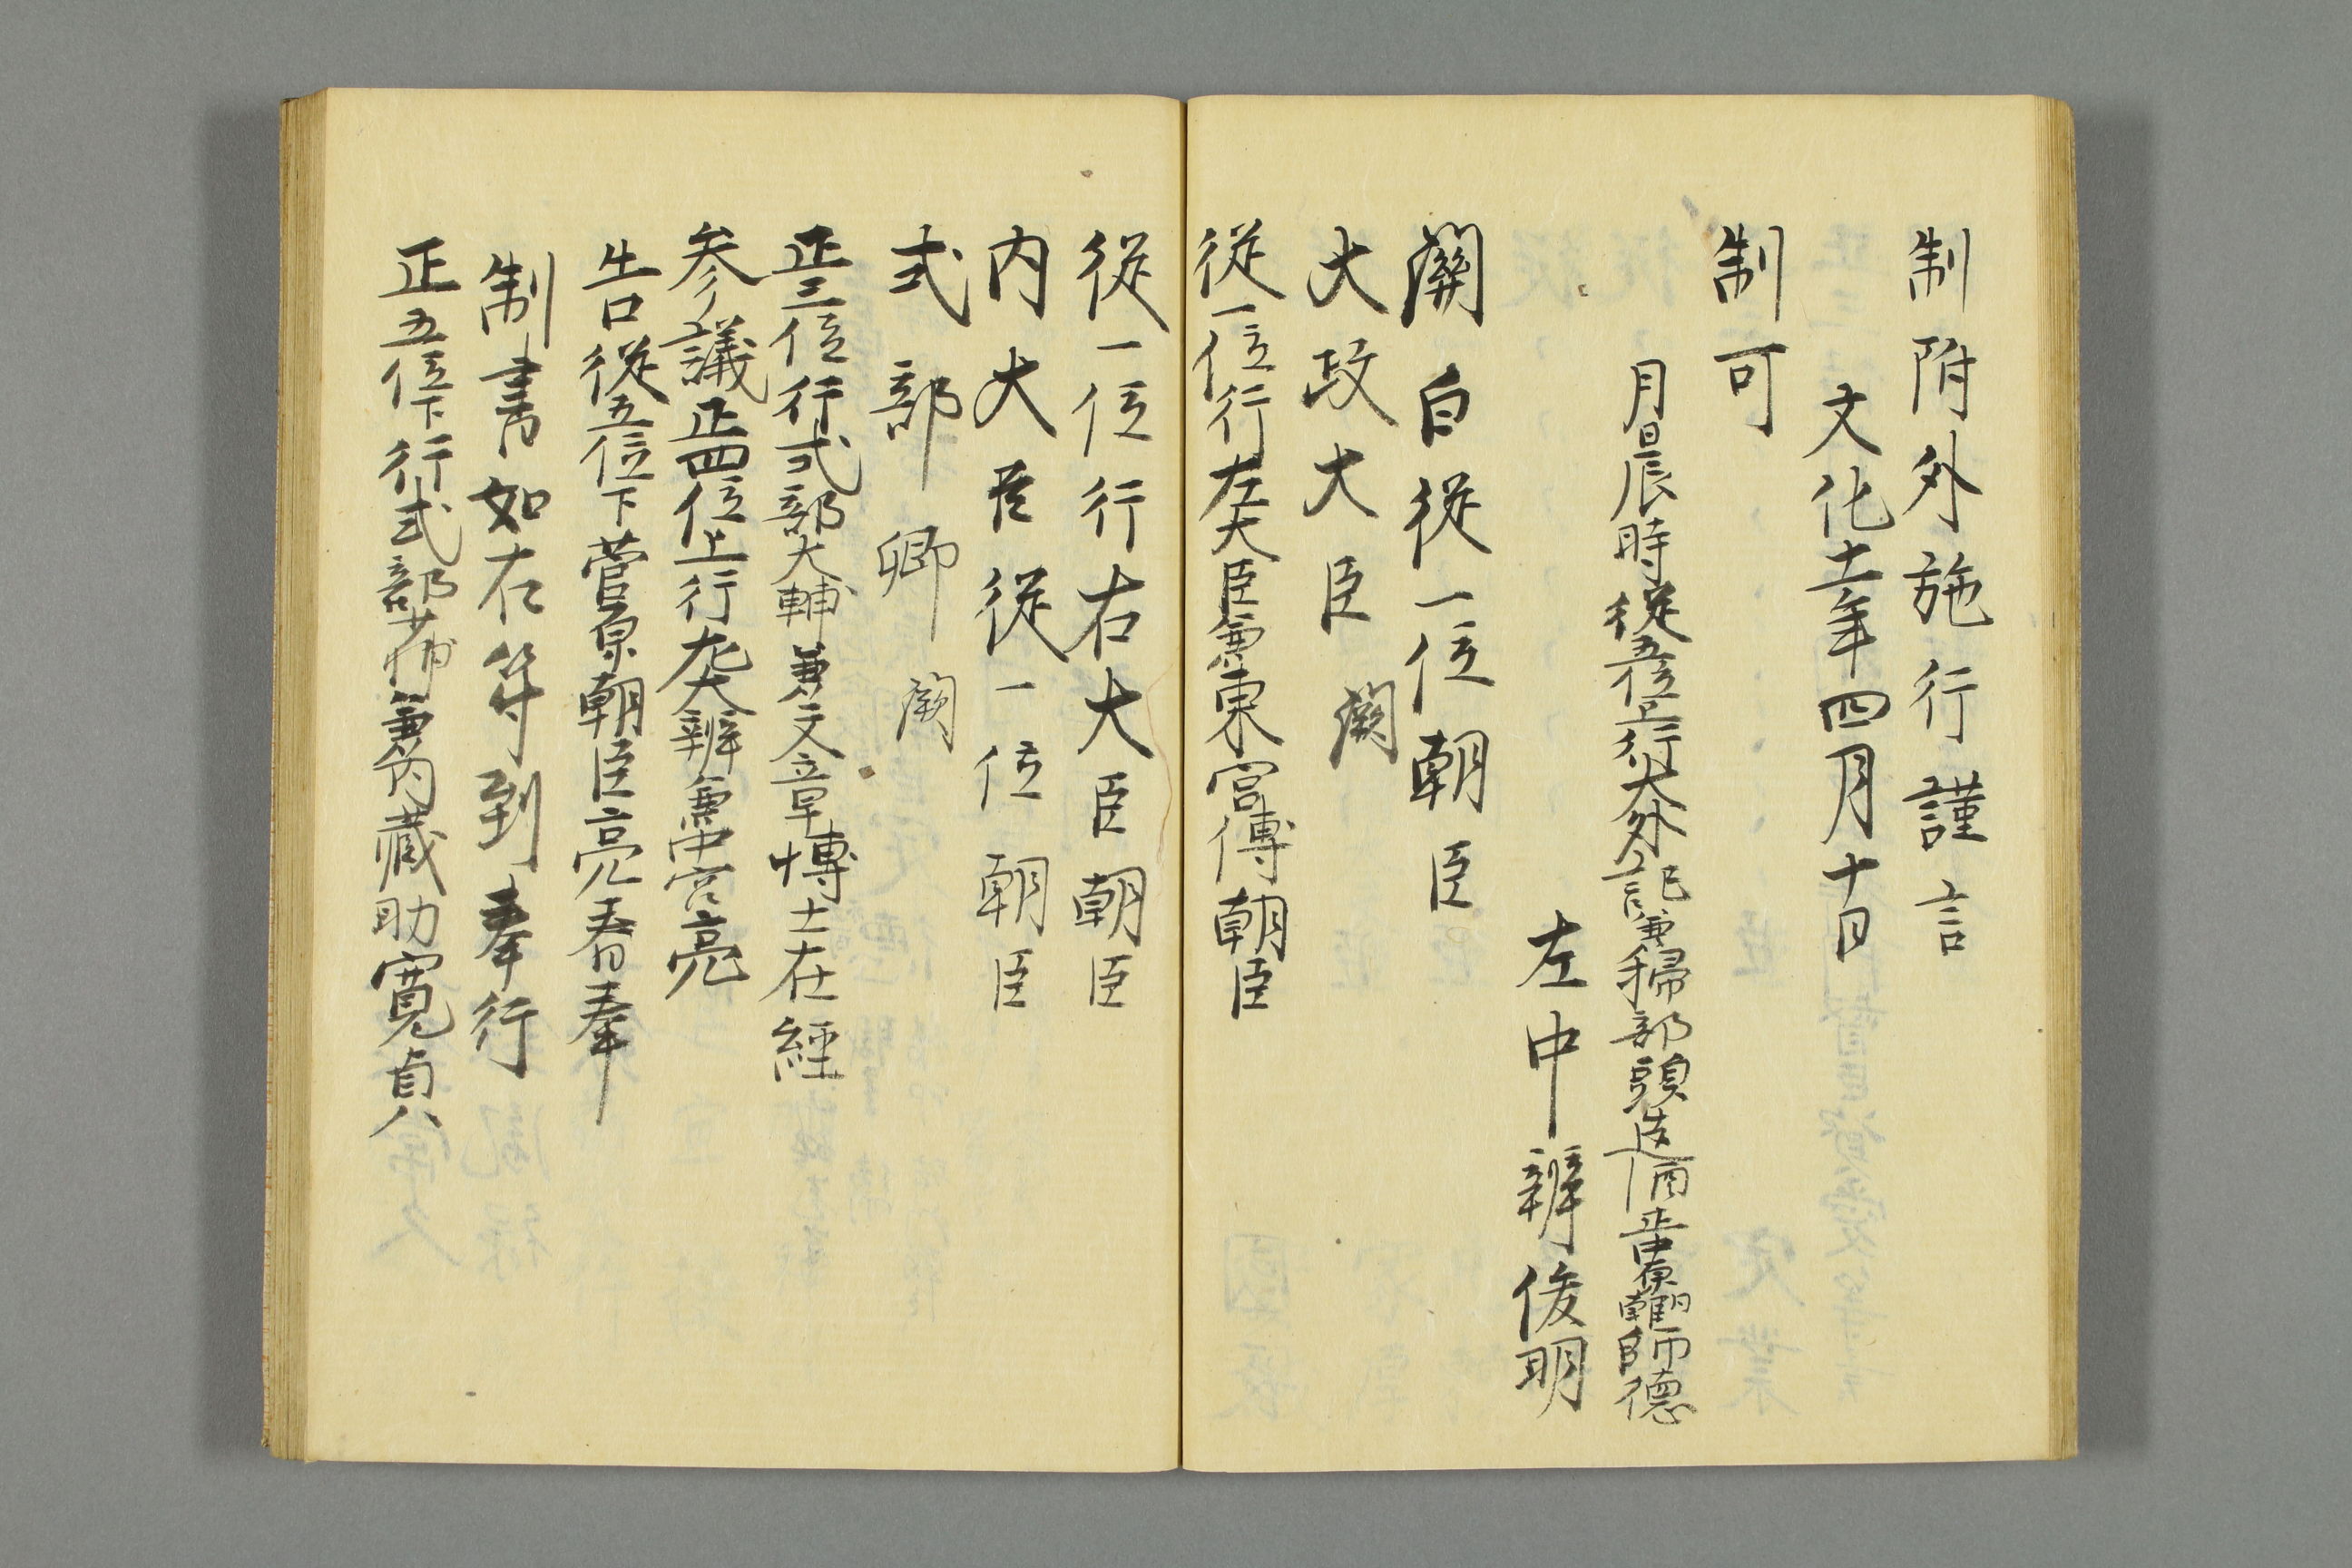 制附外施行謹言
文化十一年四月十日
制可
月日辰時從五位上行大外記兼掃部頭造酒正中原朝臣師德
左中辨俊明
關白從一位朝臣
太政大臣 闕
從一位行左大臣兼東宮傅朝臣
從一位行右大臣朝臣
內大臣從一位朝臣
式部卿 闕
正三位行式部大輔兼文章博士在經
參議正四位上行左大辨兼中宮亮
告從五位下菅原朝臣亮春奉
制書如右符到奉行
正五位下行式部少輔兼內藏助寬貞